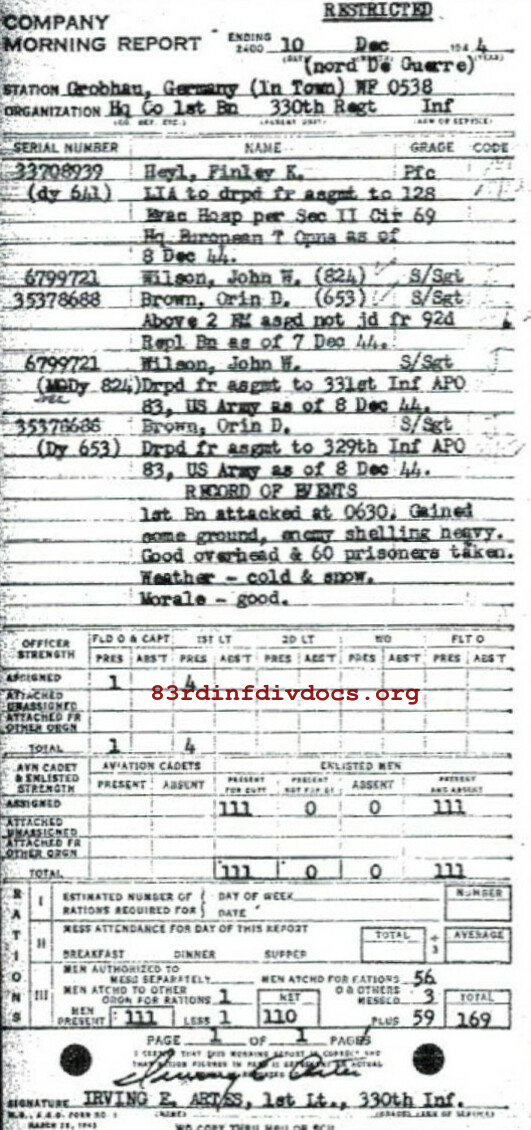 RESTRICTED
COMPANY
MORNING REPORT ENDING 2400 10 Dec 194 4
(nord De Guerre)
STATION Grobhau, Germany (In Town) WF 0538
ORGANIZATION Hq Co 1st Bn 330th Regt Inf
SERIAL NUMBER NAME GRADE CODE
33708939 Heyl, Finley K. Pfc
(dy 641) LIA to drpd fr asgmt to 128
Evac Hosp per Sec II Cir 69
Hq European T Opns as of
8 Dec 44.
6799721 Wilson, John W. (824) S/Sgt
35378688 Brown, Orin D. (653) S/Sgt
Above 2 EM asgd not jd fr 92d
Repl Bn as of 7 Dec 44.
6799721 Wilson, John W. S/Sgt
Dy 824) Drpd fr asgmt to 331st Inf APO
83, US Army as of 8 Dec 44.
35378688 Brown, Orin D. S/Sgt
(Dy 653) Drpd fr asgmt to 329th Inf APO
83, US Army as of 8 Dec 44.
RECORD OF EVENTS
1st Bn attacked at 0630. Gained
some ground, enemy shelling heavy.
Good overhead & 60 prisoners taken.
Weather - cold & snow.
Morale - good.
OFFICER STRENGTH FLD O & CAPT 1ST LT 2D LT WO FLT O
PRES ABS'T PRES ABS'T PRES ABS'T PRES ABS'T PRES ABS'T
ASSIGNED 1 4
83rdinfdivdocs.org
ATTACHED UNASSIGNED
ATTACHED FR OTHER ORGN
TOTAL 1 4
AVN CADET & ENLISTED STRENGTH AVIATION CADETS ENLISTED MEN
PRESENT ABSENT PRESENT FOR DUTY PRESENT NOT FOR DY ABSENT PRESENT AND ABSENT
ASSIGNED 111 0 0 111
ATTACHED UNASSIGNED
ATTACHED FR OTHER ORGN
TOTAL 111 0 0 111
RATIONS
I ESTIMATED NUMBER OF RATIONS REQUIRED FOR DAY OF WEEK DATE NUMBER
II MESS ATTENDANCE FOR DAY OF THIS REPORT TOTAL ÷ 3 AVERAGE
BREAKFAST DINNER SUPPER
III MEN AUTHORIZED TO MESS SEPARATELY MEN ATCHD FOR RATIONS 56
MEN ATCHD TO OTHER ORGN FOR RATIONS 1 NET O & OTHERS MESSED 3 TOTAL
MEN PRESENT 111 LESS 1 110 PLUS 59 169
PAGE 1 OF 1 PAGES
I CERTIFY THAT THIS MORNING REPORT IS CORRECT AND
SIGNATURE IRVING E. 1st Lt., 330th Inf.
W.D., A.G.O. FORM NO. 1
MARCH 25, 1943